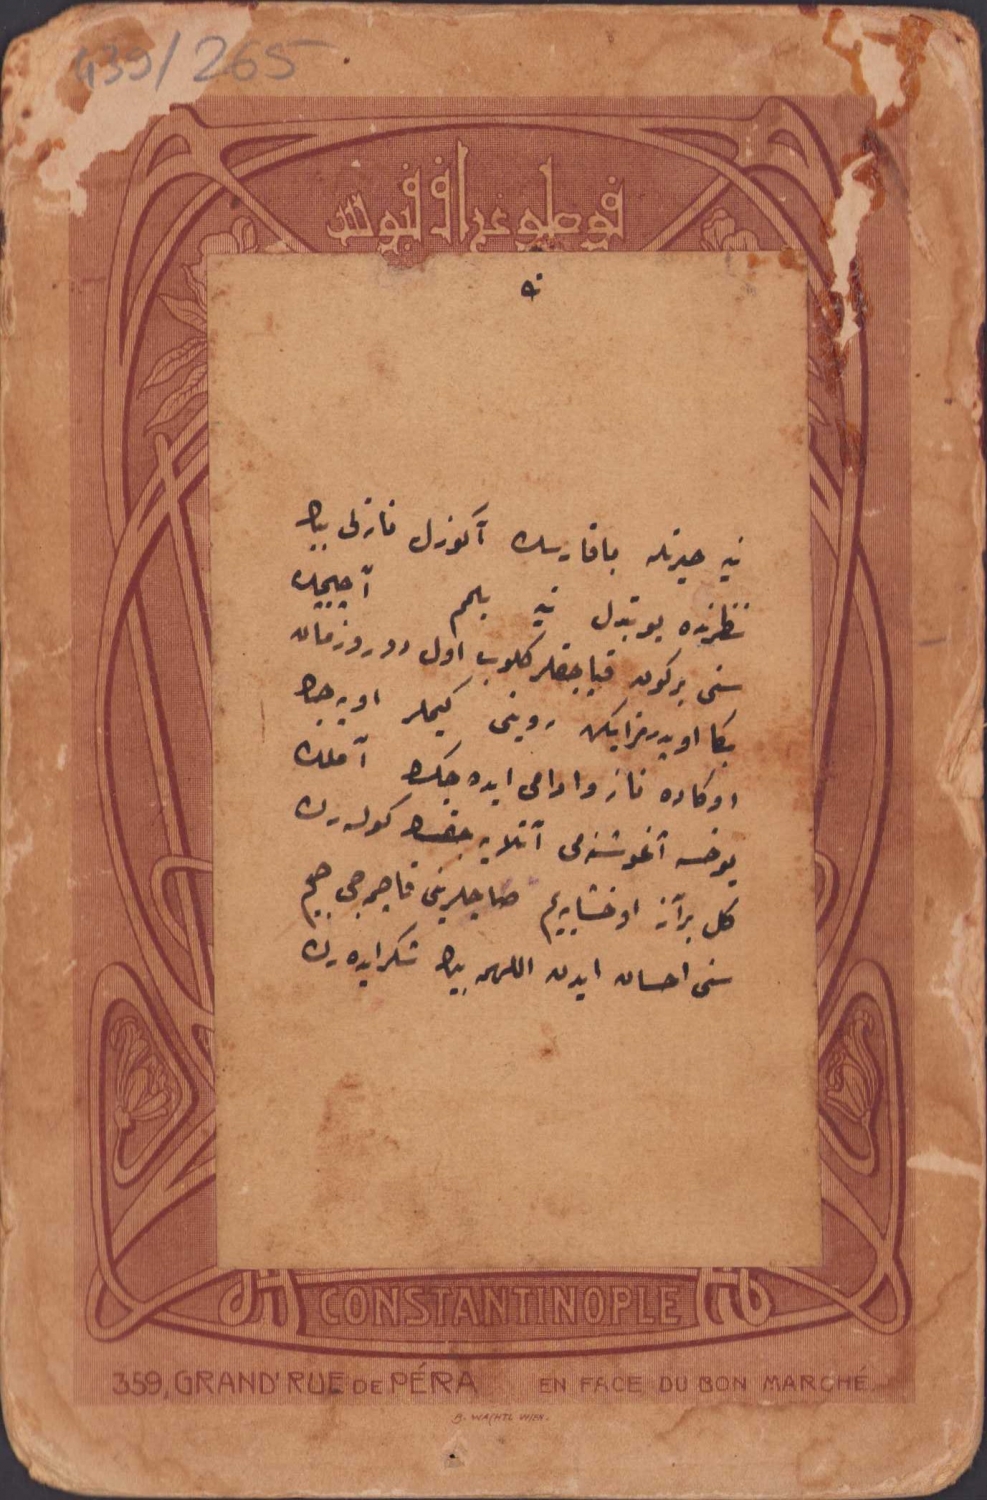 439/265
فوطوغراف فبوس
نه حیرتله باقارسك آ گوزل نازلی ببك
نظرنده یوتبدل نه بلم آجیجك
سنی بركون قیاجقلر كلوب اول دور و زمان
بكا اویدرمزایكن روینی كیملر اوپه جك
او كا ده ناز و ادامی ایده جكسك آ ملك
یوخسه آغوشنه می آتلایه جقسك كوله رك
كل برآز اوخشایه یم صاچلرینی قاچمه جیجیم
سنی احسان ایدن اللهمه بیك شكر ایده رك
CONSTANTINOPLE
359, GRAND' RUE DE PÉRA EN FACE DU BON MARCHÉ.
B. WACHTL WIEN.